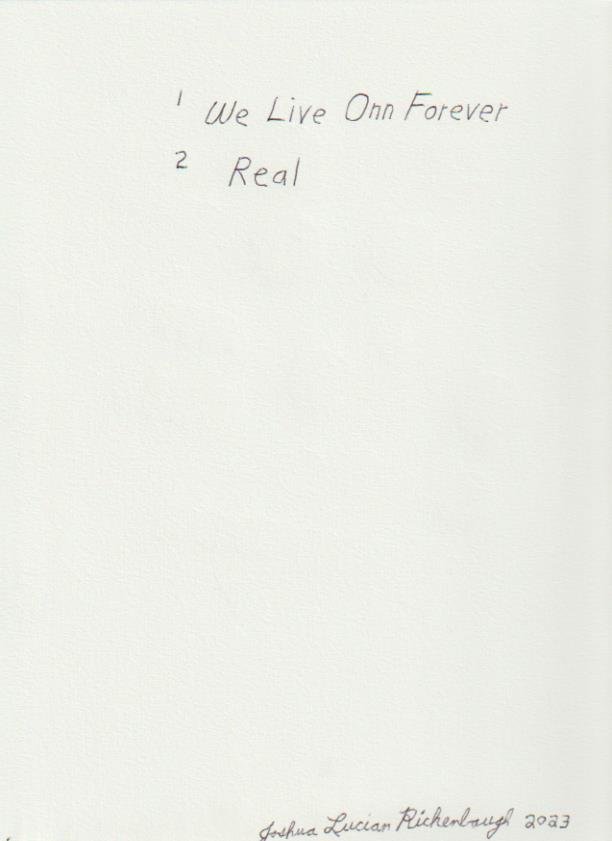 1 We Live Onn Forever
2 Real
Joshua Lucian Richenbaugh 2023